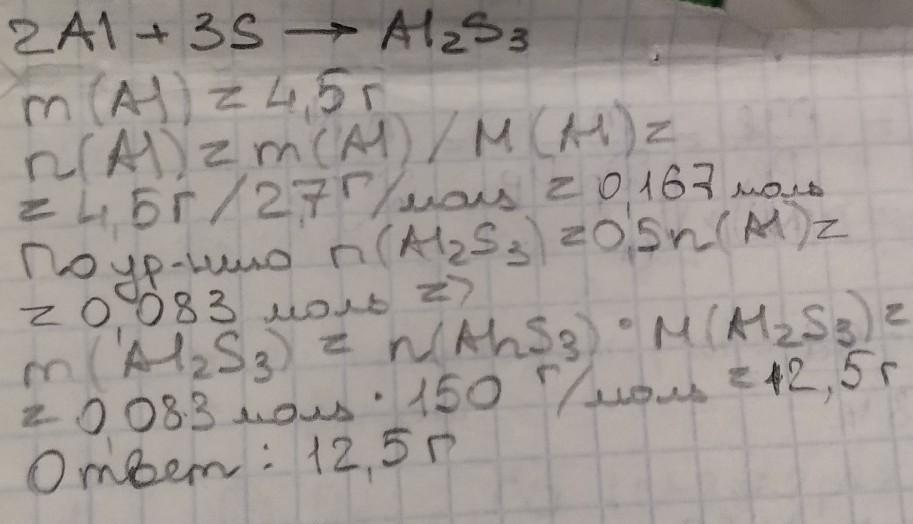 2Al + 3S → Al₂S₃
m(Al) = 4,5 г
n(Al) = m(Al) / M(Al) =
= 4,5 г / 27 г/моль = 0,167 моль
По ур-нию n(Al₂S₃) = 0,5n(Al) =
= 0,083 моль =>
m(Al₂S₃) = n(AlnS₃) · M(Al₂S₃) =
= 0,083 моль · 150 г/моль = 12,5 г
Ответ: 12,5 г